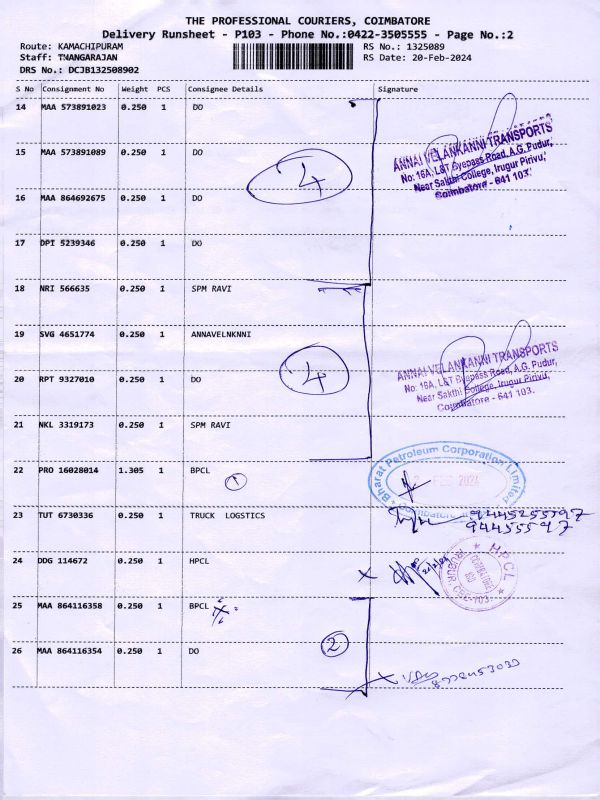 THE PROFESSIONAL COURIERS, COIMBATORE
Delivery Runsheet - P103 - Phone No.:0422-3505555 - Page No.:2
Route: KAMACHIPURAM RS No.: 1325089
Staff: TMANGARAJAN RS Date: 20-Feb-2024
DRS No.: DCJB132508902
S No Consignment No Weight PCS Consignee Details Signature
14 MAA 573891023 0.250 1 DO
ANNAI VELANKANNI TRANSPORTS
No: 16A, L&T Byepass Road, A.G. Pudur,
Near Sakthi College, Irugur Pirivu,
Coimbatore - 641 103.
15 MAA 573891089 0.250 1 DO
4
16 MAA 864692675 0.250 1 DO
17 DPI 5239346 0.250 1 DO
18 NRI 566635 0.250 1 SPM RAVI
19 SVG 4651774 0.250 1 ANNAVELNKNNI
ANNAI VELANKANNI TRANSPORTS
No: 16A, L&T Byepass Road, A.G. Pudur,
Near Sakthi College, Irugur Pirivu,
Coimbatore - 641 103.
4
20 RPT 9327010 0.250 1 DO
21 NKL 3319173 0.250 1 SPM RAVI
22 PRO 16028014 1.305 1 BPCL
1
Bharat Petroleum Corporation Limited
FEB 2024
Coimbatore
23 TUT 6730336 0.250 1 TRUCK LOGSTICS
9445255597
94455597
24 DDG 114672 0.250 1 HPCL
HPCL
25 MAA 864116358 0.250 1 BPCL
26 MAA 864116354 0.250 1 DO
2